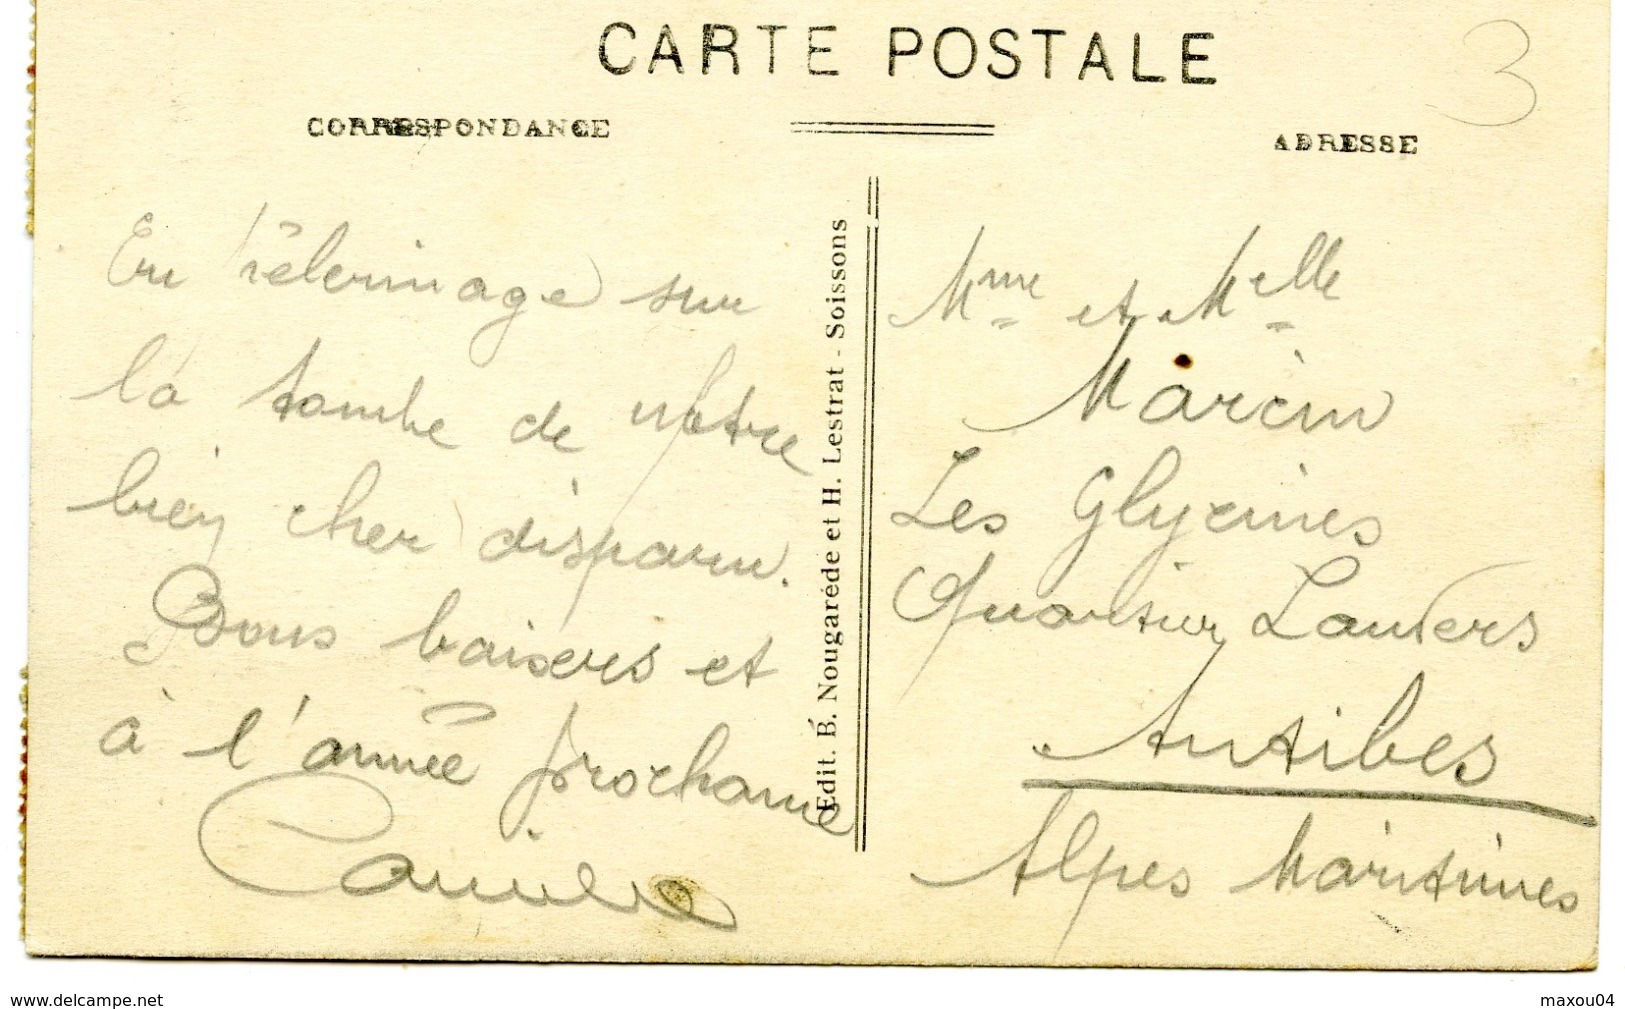 CARTE POSTALE
3
CORRESPONDANCE
ADRESSE
En Pèlerinage sur
la tombe de Nôtre
bien cher disparu.
Bons baisers et
à l'année prochaine
Camille
Edit. B. Nougaréde et H. Lestrat - Soissons
Mme et Melle
Marcin
Les Glycines
Quartier Lauvers
Antibes
Alpes Maritimes
www.delcampe.net
maxou04